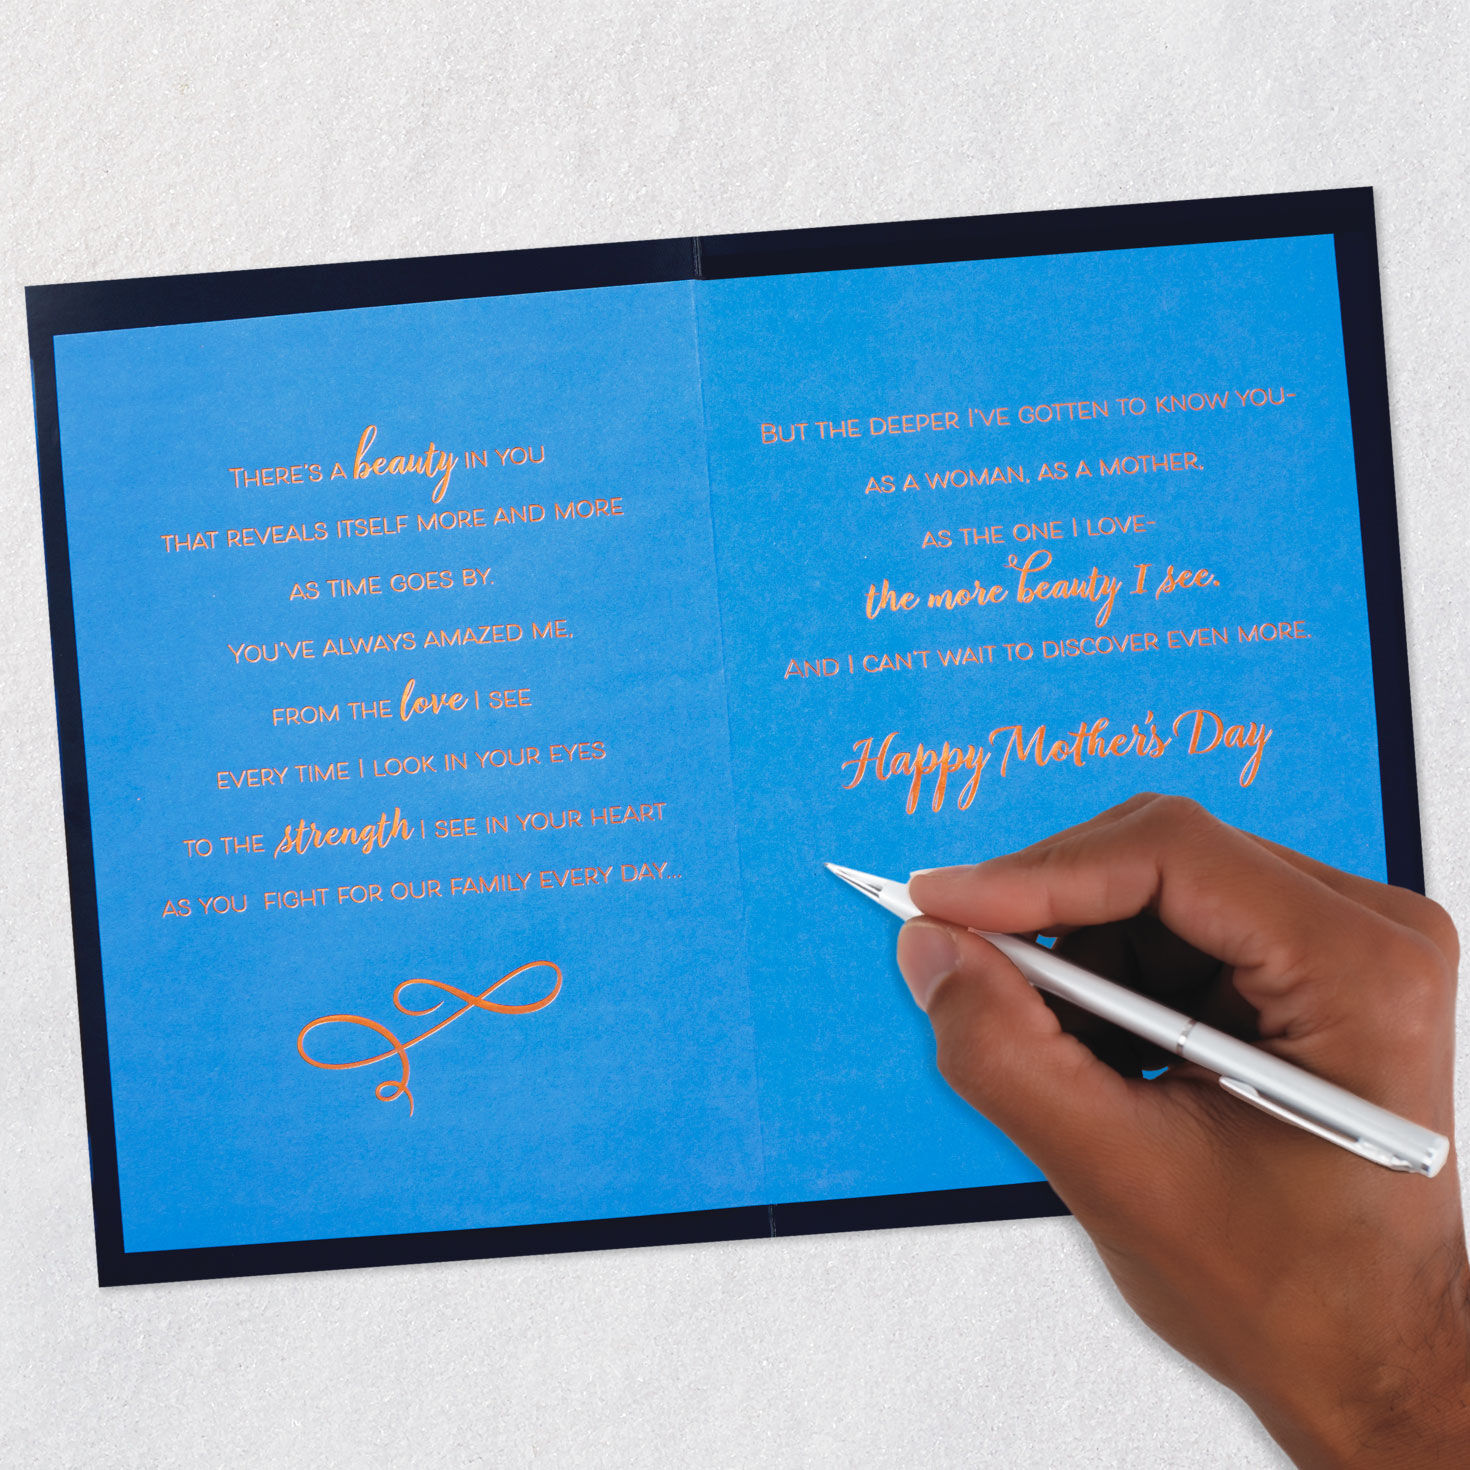 There's a beauty in you
that reveals itself more and more
as time goes by.
You've always amazed me,
from the love I see
every time I look in your eyes
to the strength I see in your heart
as you fight for our family every day...
But the deeper I've gotten to know you-
as a woman, as a mother,
as the one I love-
the more beauty I see.
And I can't wait to discover even more.
Happy Mother's Day